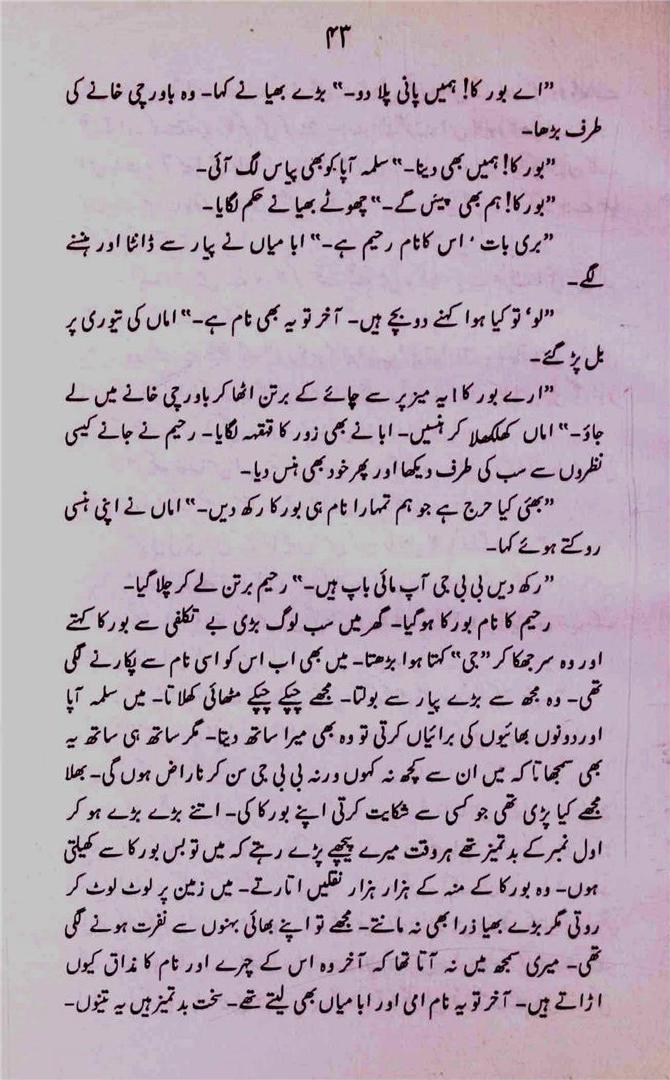 ۴۳
”اے بور کا! ہمیں پانی پلا دو۔“ بڑے بھیا نے کہا۔ وہ باورچی خانے کی
طرف بڑھا۔
”بور کا! ہمیں بھی دینا۔“ سلمہ آپا کو بھی پیاس لگ آئی۔
”بور کا! ہم بھی پیئں گے۔“ چھوٹے بھیا نے حکم لگایا۔
”بری بات ‘ اس کا نام رحیم ہے۔“ ابا میاں نے پیار سے ڈانٹا اور ہنسنے
لگے۔
”لو‘ تو کیا ہوا کہنے دو بچے ہیں۔ آخر تو یہ بھی نام ہے۔“ اماں کی تیوری پر
بل پڑ گئے۔
”ارے بور کا! یہ میز پر سے چائے کے برتن اٹھا کر باورچی خانے میں لے
جاؤ۔“ اماں کھلکھلا کر ہنسیں۔ ابا نے بھی زور کا قہقہہ لگایا۔ رحیم نے جانے کیسی
نظروں سے سب کی طرف دیکھا اور پھر خود بھی ہنس دیا۔
”بھئی کیا حرج ہے جو ہم تمہارا نام ہی بور کا رکھ دیں۔“ اماں نے اپنی ہنسی
روکتے ہوئے کہا۔
”رکھ دیں بی بی جی آپ مائی باپ ہیں۔“ رحیم برتن لے کر چلا گیا۔
رحیم کا نام بور کا ہو گیا۔ گھر میں سب لوگ بڑی بے تکلفی سے بور کا کہتے
اور وہ سر جھکا کر ”جی“ کہتا ہوا بڑھتا۔ میں بھی اب اس کو اسی نام سے پکارنے لگی
تھی۔ وہ مجھ سے بڑے پیار سے بولتا۔ مجھے چپکے چپکے مٹھائی کھلاتا۔ میں سلمہ آپا
اور دونوں بھائیوں کی برائیاں کرتی تو وہ بھی میرا ساتھ دیتا۔ مگر ساتھ ہی ساتھ یہ
بھی سمجھاتا کہ میں ان سے کچھ نہ کہوں ورنہ بی بی جی سن کر ناراض ہوں گی۔ بھلا
مجھے کیا پڑی تھی جو کسی سے شکایت کرتی اپنے بور کا کی۔ اتنے بڑے بڑے ہو کر
اول نمبر کے بدتمیز تھے ہر وقت میرے پیچھے پڑے رہتے کہ میں تو بس بور کا سے کھیلتی
ہوں۔ وہ بور کا کے منہ کے ہزار ہزار نقلیں اتارتے۔ میں زمین پر لوٹ لوٹ کر
روتی مگر بڑے بھیا ذرا بھی نہ مانتے۔ مجھے تو اپنے بھائی بہنوں سے نفرت ہونے لگی
تھی۔ میری سمجھ میں نہ آتا تھا کہ آخر وہ اس کے چہرے اور نام کا مذاق کیوں
اڑاتے ہیں۔ آخر تو یہ نام امی اور ابا میاں بھی لیتے تھے۔ سخت بدتمیز ہیں یہ تینوں۔